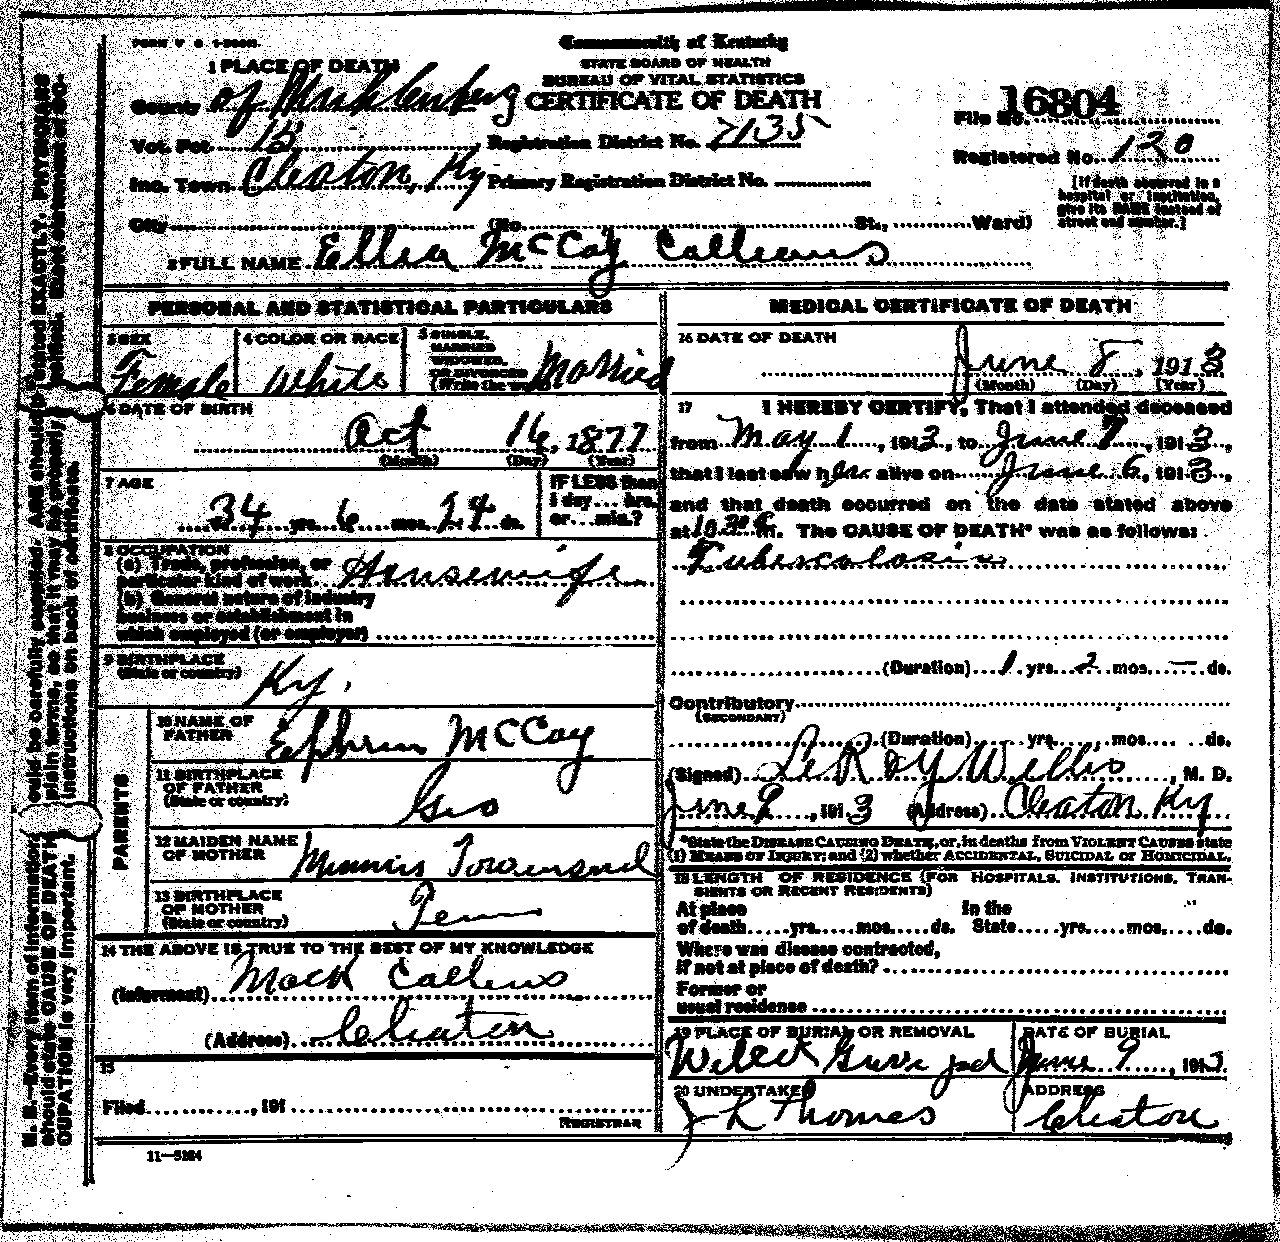 FORM V. S. 1-500M.
Commonwealth of Kentucky
STATE BOARD OF HEALTH
BUREAU OF VITAL STATISTICS
CERTIFICATE OF DEATH
1 PLACE OF DEATH
County of Muhlenberg
Vot. Pct. 18 Registration District No. 7135
Inc. Town Cleaton, Ky Primary Registration District No.
City (No. St., Ward)
File No. 16804
Registered No. 120
[If death occurred in a
hospital or institution,
give its NAME instead of
street and number.]
2 FULL NAME Ellen McCoy Calleans
PERSONAL AND STATISTICAL PARTICULARS
3 SEX Female
4 COLOR OR RACE White
5 SINGLE,
MARRIED
WIDOWED,
OR DIVORCED
(Write the word) Married
6 DATE OF BIRTH
Oct 16, 1877
(Month) (Day) (Year)
7 AGE
34 yrs. 6 mos. 24 ds.
IF LESS than
1 day... hrs.
or... min.?
8 OCCUPATION
(a) Trade, profession, or
particular kind of work Housewife
(b) General nature of industry
business or establishment in
which employed (or employer)
9 BIRTHPLACE
(State or country) Ky.
PARENTS
10 NAME OF
FATHER Ephrim McCoy
11 BIRTHPLACE
OF FATHER
(State or country) Geo
12 MAIDEN NAME
OF MOTHER Minnis Townsend
13 BIRTHPLACE
OF MOTHER
(State or country) Tenn
14 THE ABOVE IS TRUE TO THE BEST OF MY KNOWLEDGE
(Informant) Mack Calleans
(Address) Cleaton
15
Filed , 191
REGISTRAR
11—5184
MEDICAL CERTIFICATE OF DEATH
16 DATE OF DEATH
June 8, 1913
(Month) (Day) (Year)
17 I HEREBY CERTIFY, That I attended deceased
from May 1, 1913, to June 7, 1913,
that I last saw her alive on June 6, 1913,
and that death occurred on the date stated above
at 10.30 m. The CAUSE OF DEATH* was as follows:
Tuberculosis
(Duration) 1 yrs. 2 mos. — ds.
Contributory
(SECONDARY)
(Duration) yrs. mos. ds.
(Signed) LeRoy Willis, M. D.
June 9, 1913 (Address) Cleaton Ky
*State the DISEASE CAUSING DEATH, or, in deaths from VIOLENT CAUSES state
(1) MEANS OF INJURY; and (2) whether ACCIDENTAL, SUICIDAL or HOMICIDAL.
18 LENGTH OF RESIDENCE (FOR HOSPITALS, INSTITUTIONS, TRAN-
SIENTS OR RECENT RESIDENTS)
At place In the
of death yrs. mos. ds. State yrs. mos. ds.
Where was disease contracted,
if not at place of death?
Former or
usual residence
19 PLACE OF BURIAL OR REMOVAL
DATE OF BURIAL
June 9, 1913
20 UNDERTAKER
J R Thomas
ADDRESS
Cleaton
N. B.—Every item of information should be carefully supplied. AGE should be stated EXACTLY. PHYSICIANS
should state CAUSE OF DEATH in plain terms, so that it may be properly classified. Exact statement of OC-
CUPATION is very important. See instructions on back of certificate.